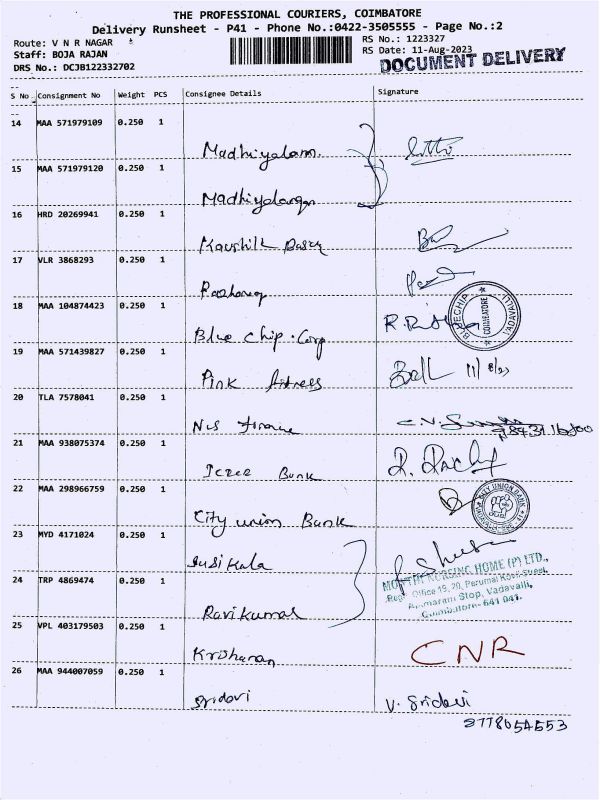 THE PROFESSIONAL COURIERS, COIMBATORE
Delivery Runsheet - P41 - Phone No.:0422-3505555 - Page No.:2
Route: V N R NAGAR
RS No.: 1223327
Staff: BOJA RAJAN
RS Date: 11-Aug-2023
DRS No.: DCJB122332702
DOCUMENT DELIVERY
S No Consignment No Weight PCS Consignee Details Signature
14 MAA 571979109 0.250 1
Madhiyalam
15 MAA 571979120 0.250 1
Madhiyalagan
16 HRD 20269941 0.250 1
Kaushik
17 VLR 3868293 0.250 1
18 MAA 104874423 0.250 1
Blue chip. Corp
BLUECHIP COIMBATORE VADAVALLI
19 MAA 571439827 0.250 1
Pink fitness
11/8/23
20 TLA 7578041 0.250 1
Nis finance
21 MAA 938075374 0.250 1
Bank
22 MAA 298966759 0.250 1
City union Bank
CITY UNION BANK
23 MYD 4171024 0.250 1
Susikala
NURSING HOME (P) LTD.,
24 TRP 4869474 0.250 1
Regd. Office 19, 20, Perumal Kovil Street,
Stop, Vadavalli,
Coimbatore- 641 041.
Ravikumar
25 VPL 403179503 0.250 1
Krishanan
CNR
26 MAA 944007059 0.250 1
Sridevi
V. Sridevi